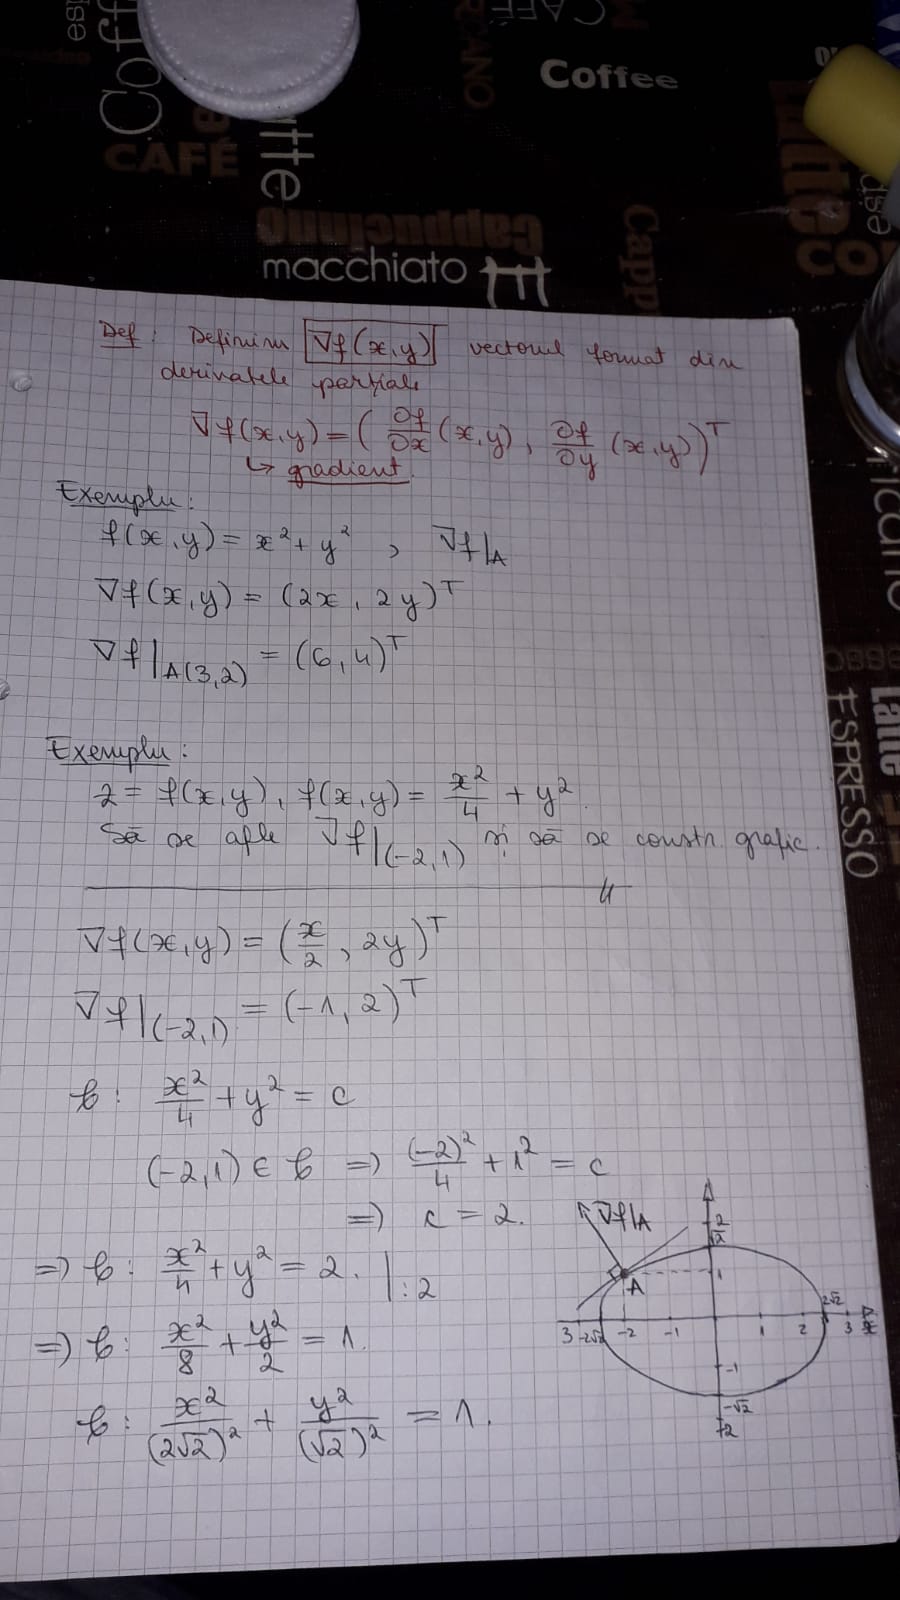 Coffee
CAFÉ
cappuccino
macchiato
Latte
ESPRESSO
Def: Definim ∇f(x,y) vectorul format din
derivatele parțiale
∇f(x,y) = (∂f/∂x (x,y), ∂f/∂y (x,y))^T
↳ gradient
Exemplu:
f(x,y) = x² + y² , ∇f|_A
∇f(x,y) = (2x, 2y)^T
∇f|_A(3,2) = (6,4)^T
Exemplu:
z = f(x,y), f(x,y) = x²/4 + y².
Să se afle ∇f|_(-2,1) și să se constr. grafic.
∇f(x,y) = (x/2, 2y)^T
∇f|_(-2,1) = (-1, 2)^T
𝒞: x²/4 + y² = c
(-2,1) ∈ 𝒞 => (-2)²/4 + 1² = c
=> c = 2.
=> 𝒞: x²/4 + y² = 2. | :2
=> 𝒞: x²/8 + y²/2 = 1.
𝒞: x²/(2√2)² + y²/(√2)² = 1.
∇f|_A
2
√2
A
1
2√2
3 -2√2 -2 -1 1 2 3
-1
-√2
-2